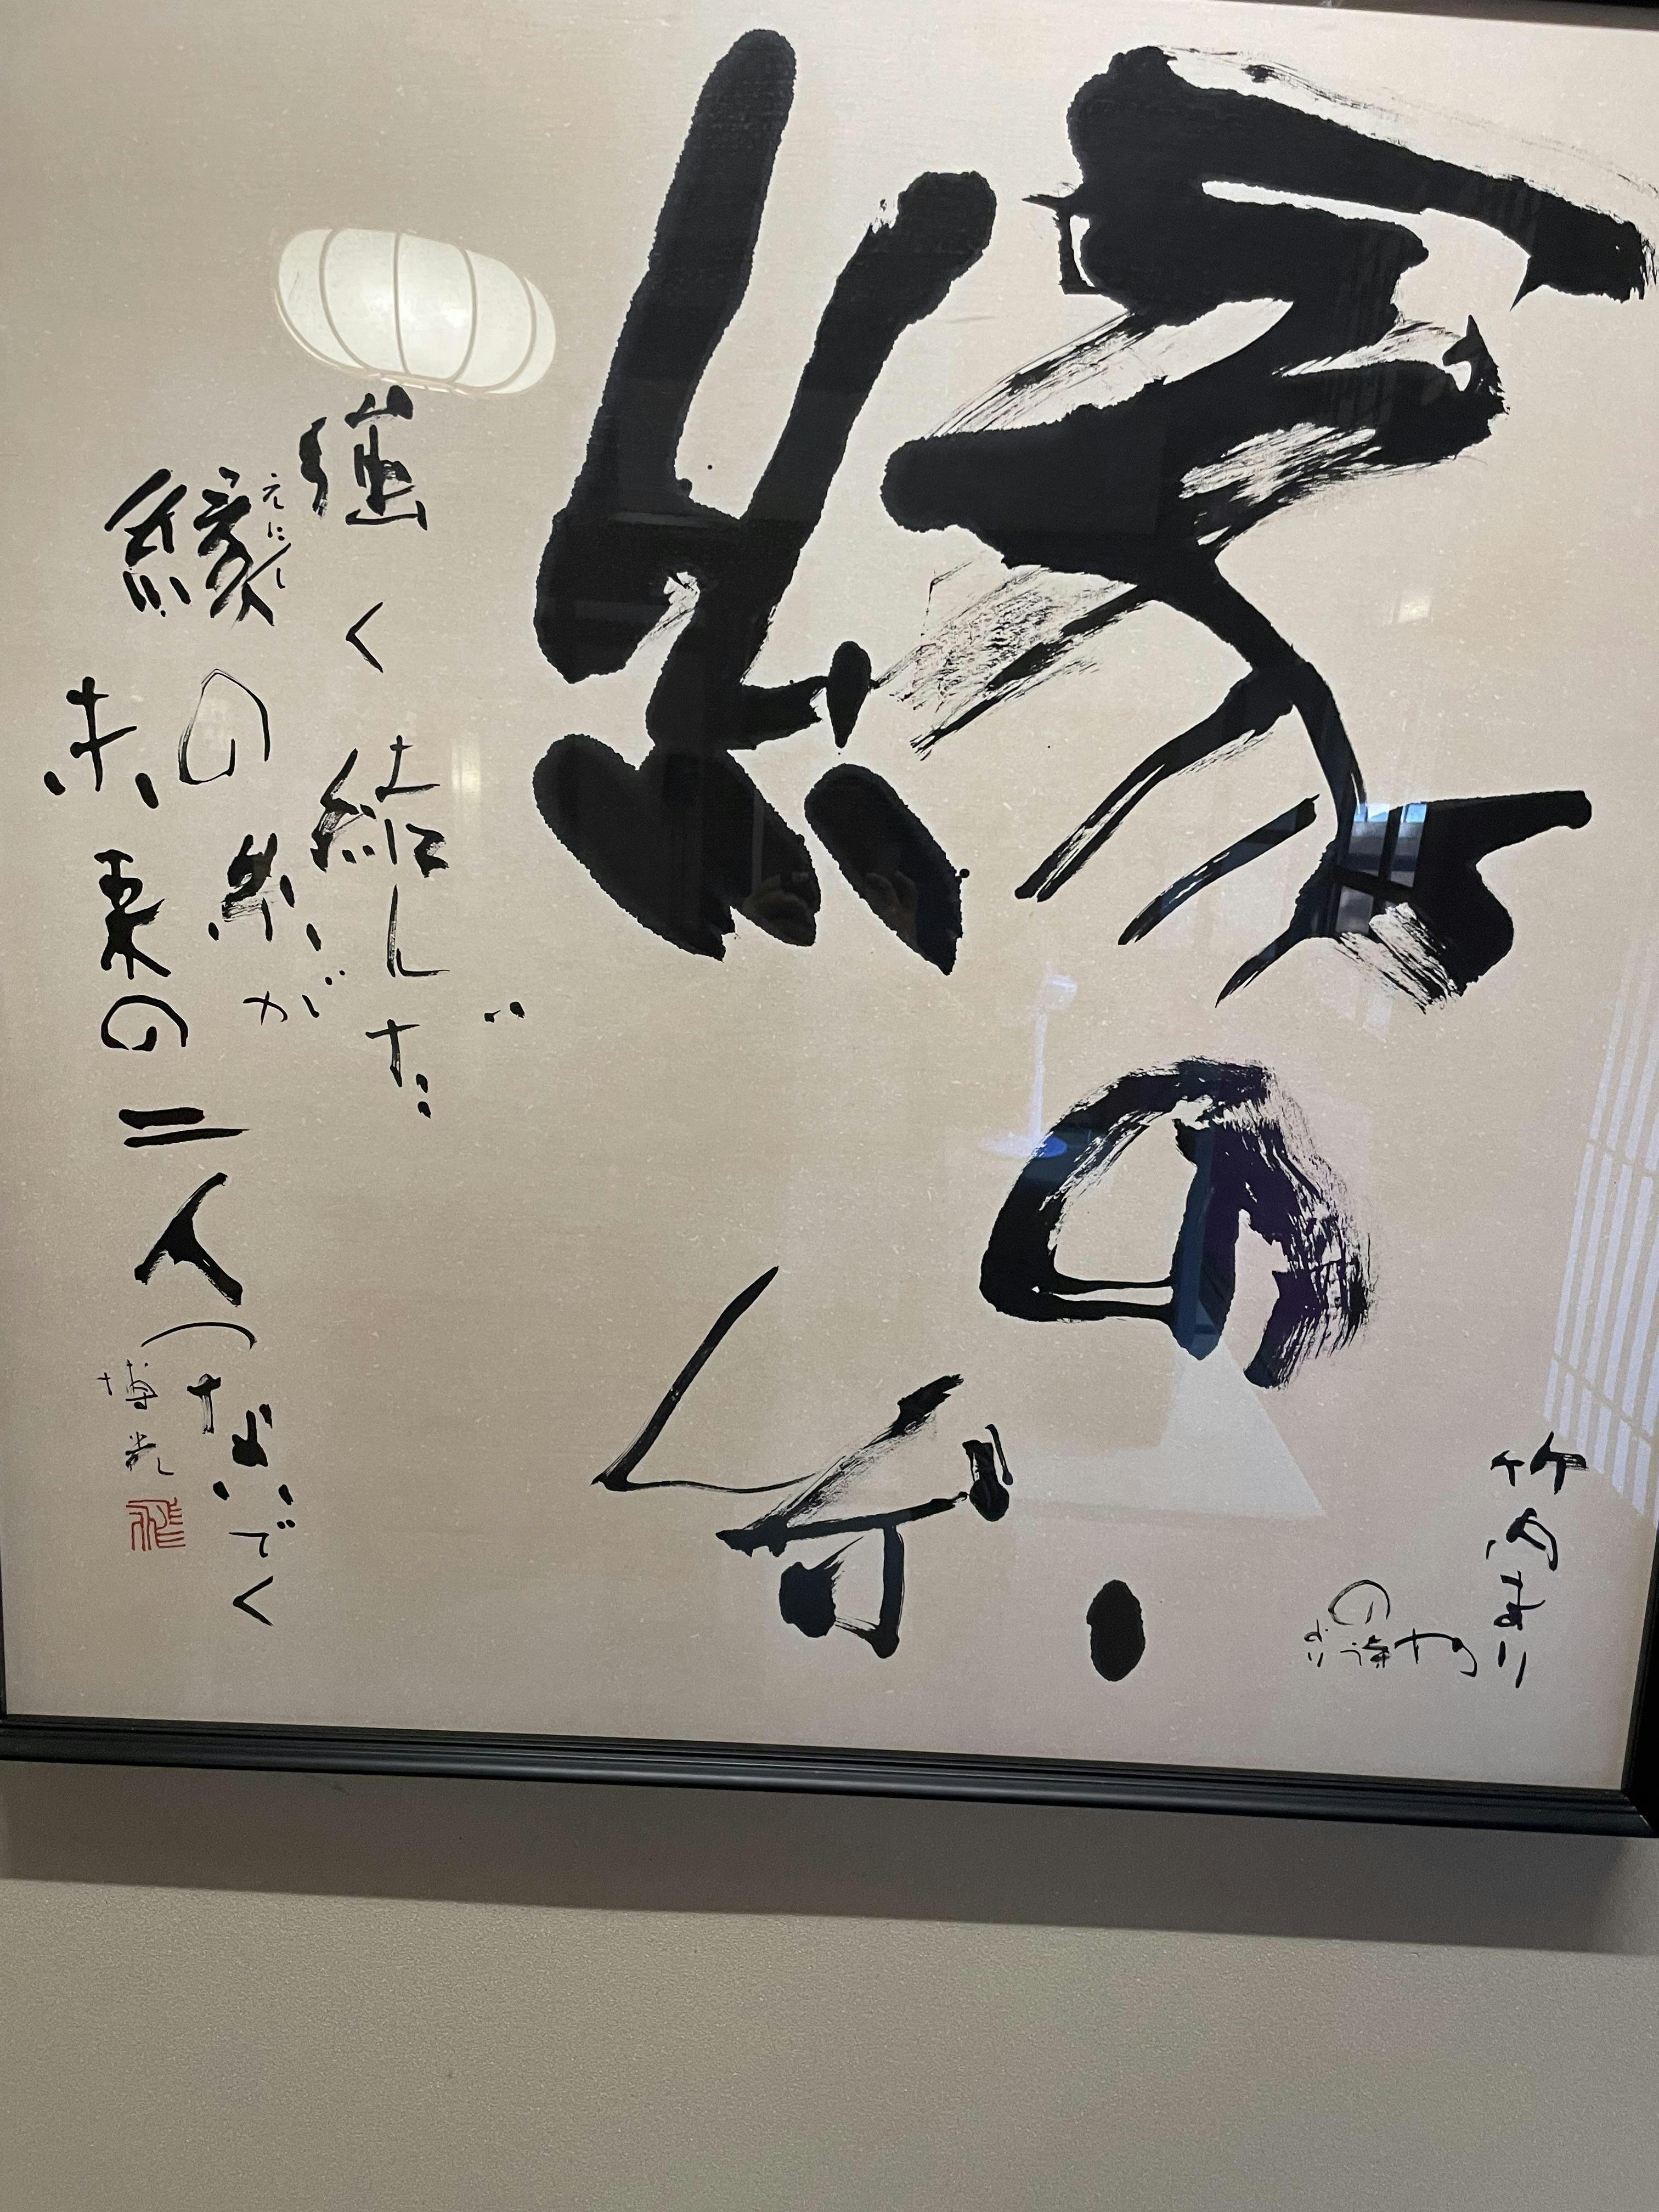 縁の糸
竹内まりや
の詩より
強く結んだ
縁の糸が
えにし
未来の二人つないでく
博光